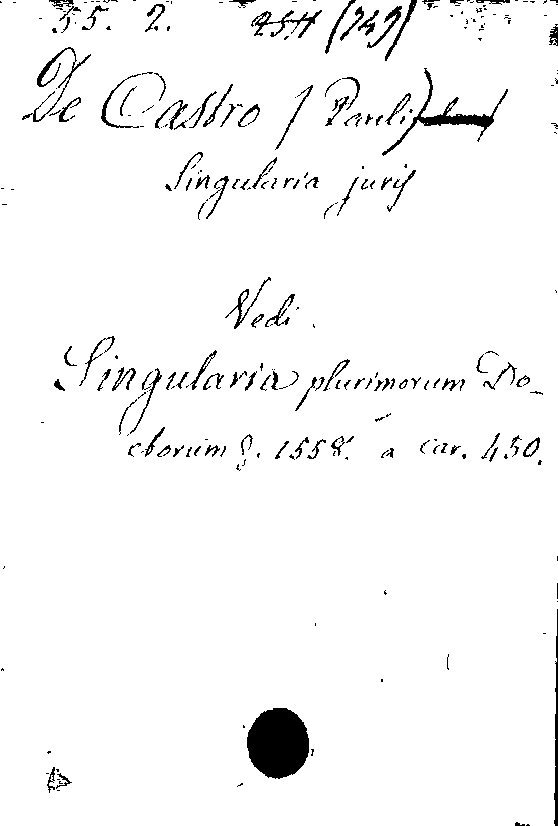 55. 2. (749)
De Castro (Pauli)
Singularia juris
Vedi
Singularia plurimorum Do-
ctorum 8. 1558. a car. 450.